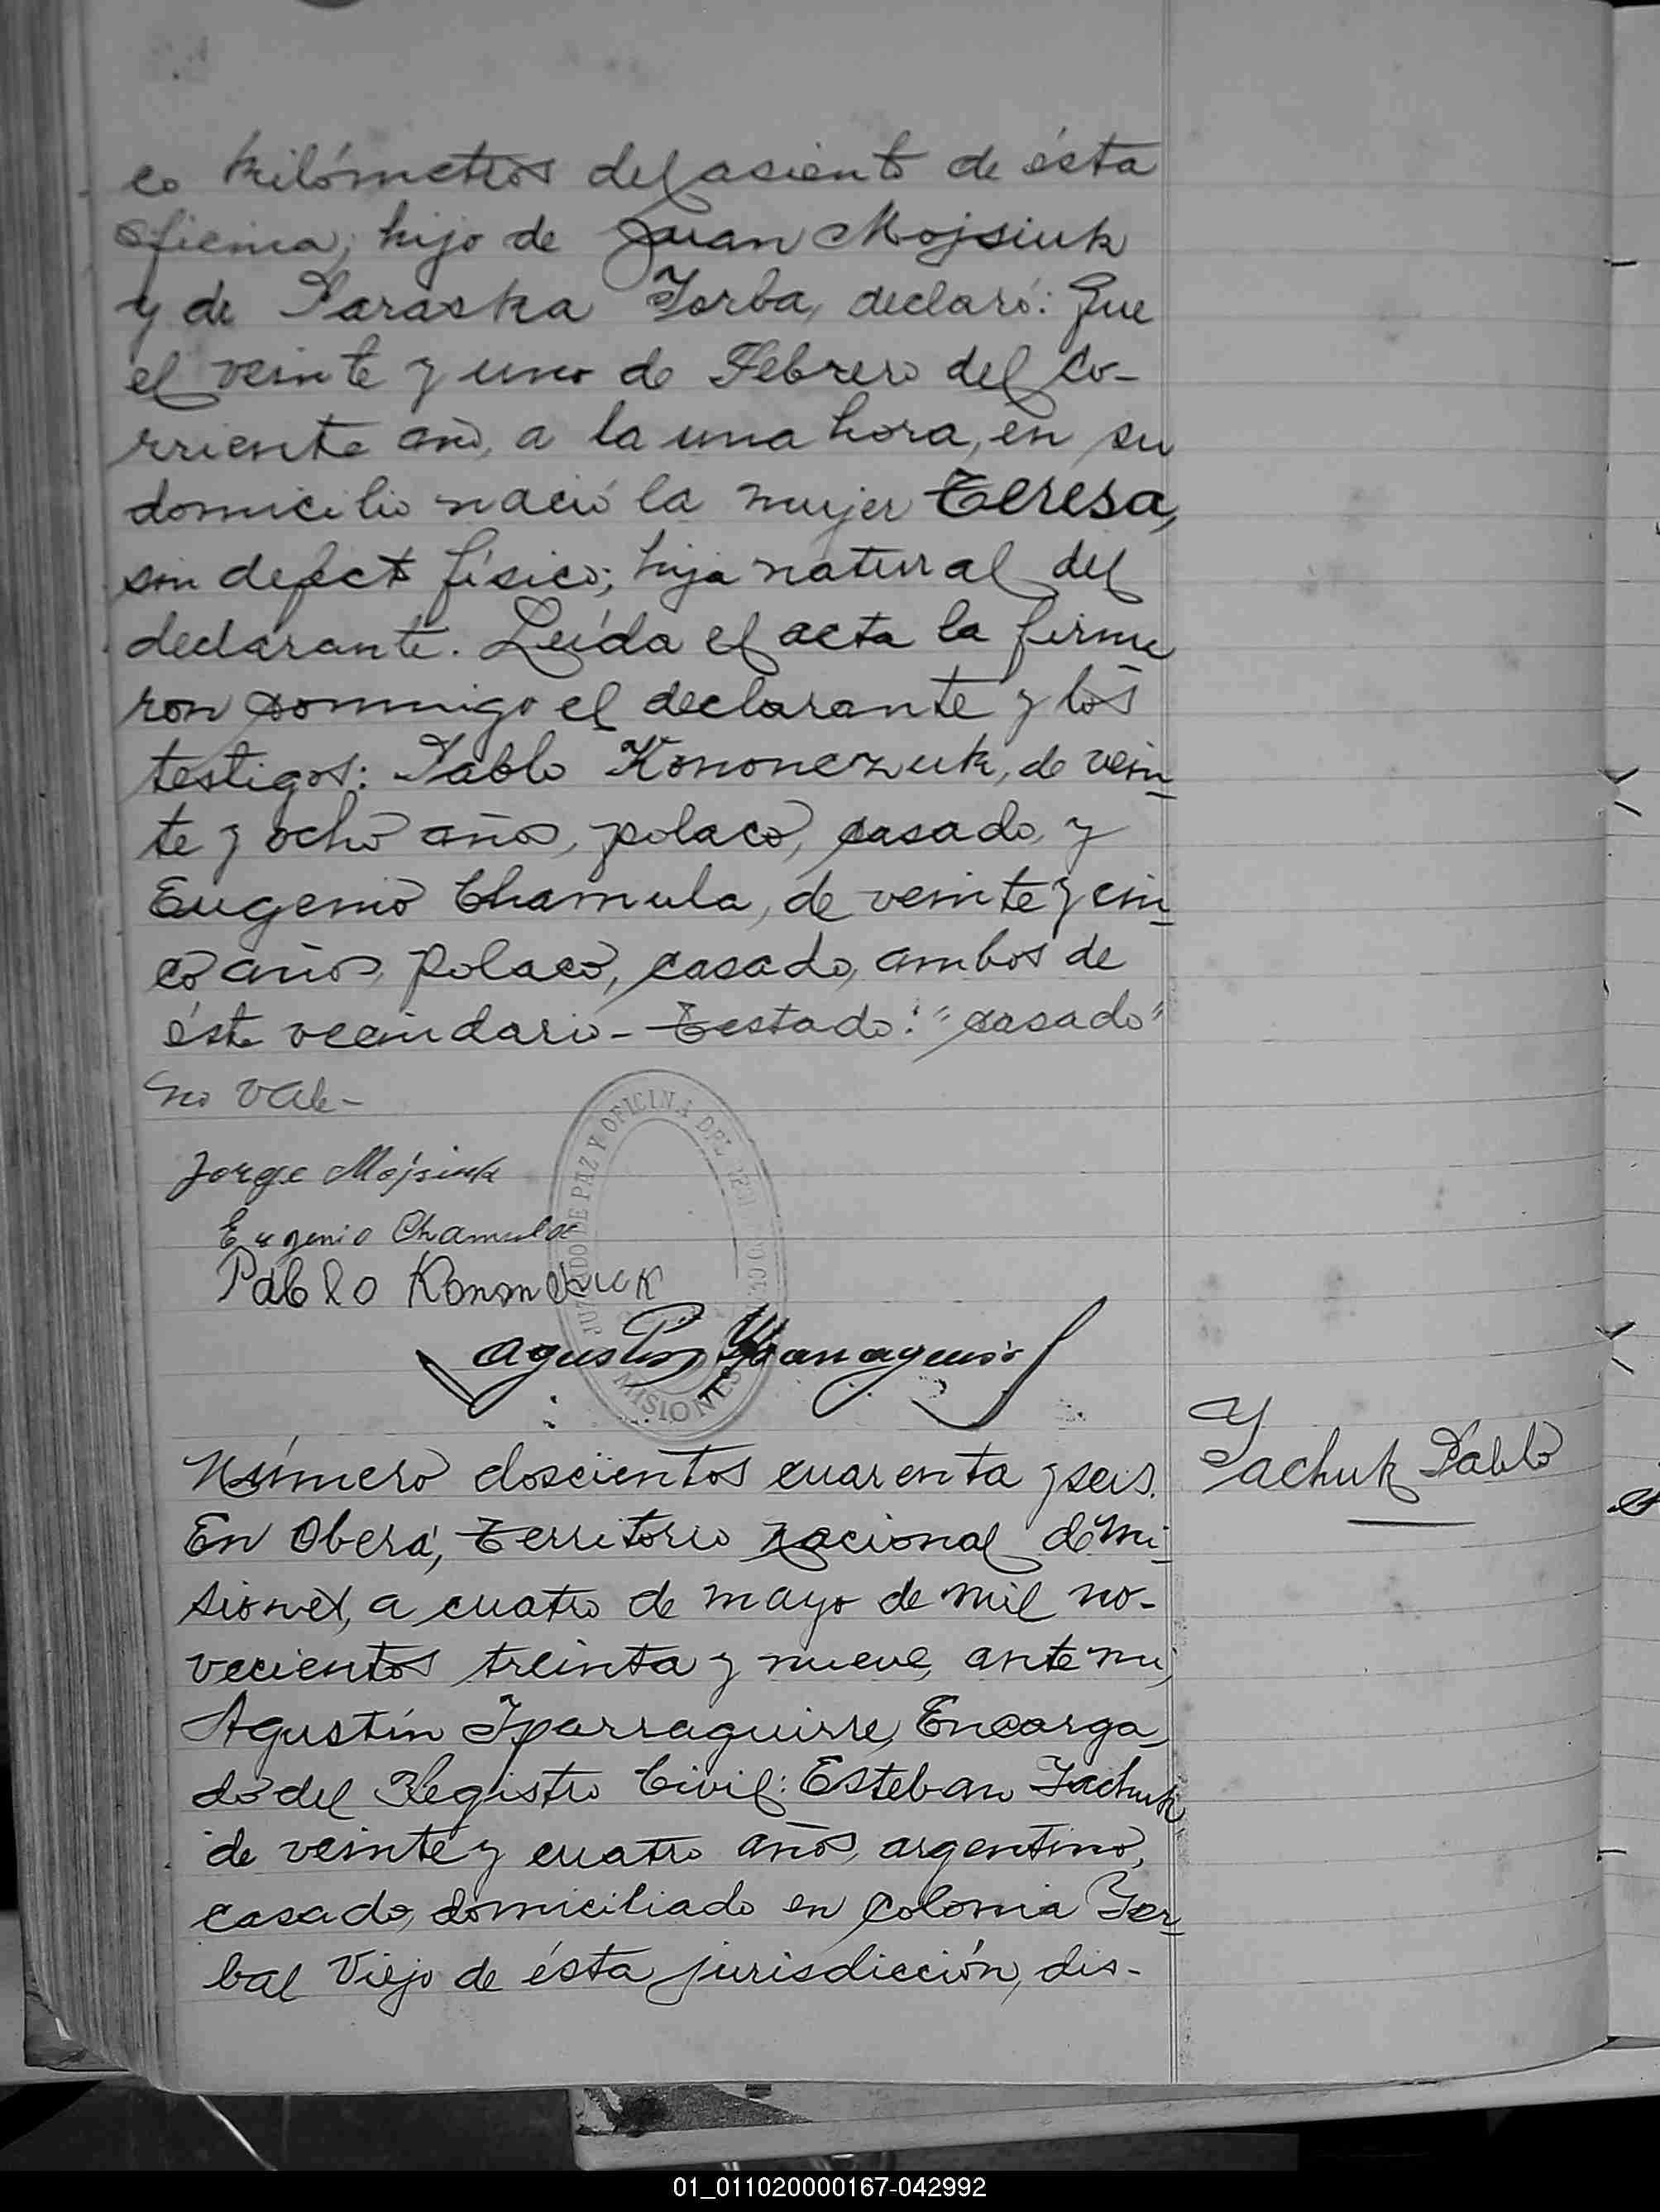 co kilómetros del asiento de ésta
oficina, hijo de Juan Mojsiuk
y de Paraska Torba, declaró: Que
el veinte y uno de Febrero del co-
rriente año, a la una hora, en su
domicilio nació la mujer Teresa,
sin defecto físico; hija natural del
declarante. Leída el acta la firma
ron conmigo el declarante y los
testigos: Pablo Kononczuk, de vein
te y ocho años, polaco, casado, y
Eugenio Chamula, de veinte y cin
co años, polaco, casado, ambos de
éste vecindario- Testado: "casado"
no vale-
Jorge Mojsiuk
Eugenio Chamula
Pablo Kononchuk
JUZGADO DE PAZ Y OFICINA DEL
MISIONES
Agustin Yparraguirre
Yachuk Pablo
Número doscientos cuarenta y seis.
En Oberá, Territorio Nacional de Mi-
siones, a cuatro de mayo de mil no-
vecientos treinta y nueve, ante mi,
Agustín Yparraguirre, Encarga
do del Registro Civil: Esteban Yachuk,
de veinte y cuatro años, argentino,
casado, domiciliado en colonia Yer
bal Viejo de ésta jurisdicción, dis-
01_011020000167-042992